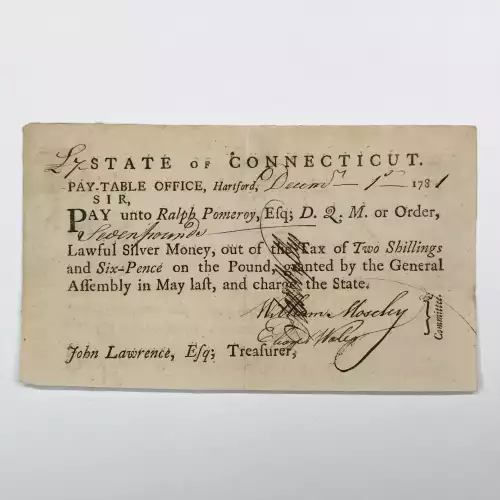 L7 STATE OF CONNECTICUT.
PAY-TABLE OFFICE, Hartford, Decemr 1st 1781
SIR,
PAY unto Ralph Pomeroy, Esq; D. Q. M. or Order,
Seven pounds
Lawful Silver Money, out of the Tax of Two Shillings
and Six-Pence on the Pound, granted by the General
Assembly in May last, and charge the State.
William Moseley
Eleazer Wales
Committee.
John Lawrence, Esq; Treasurer,